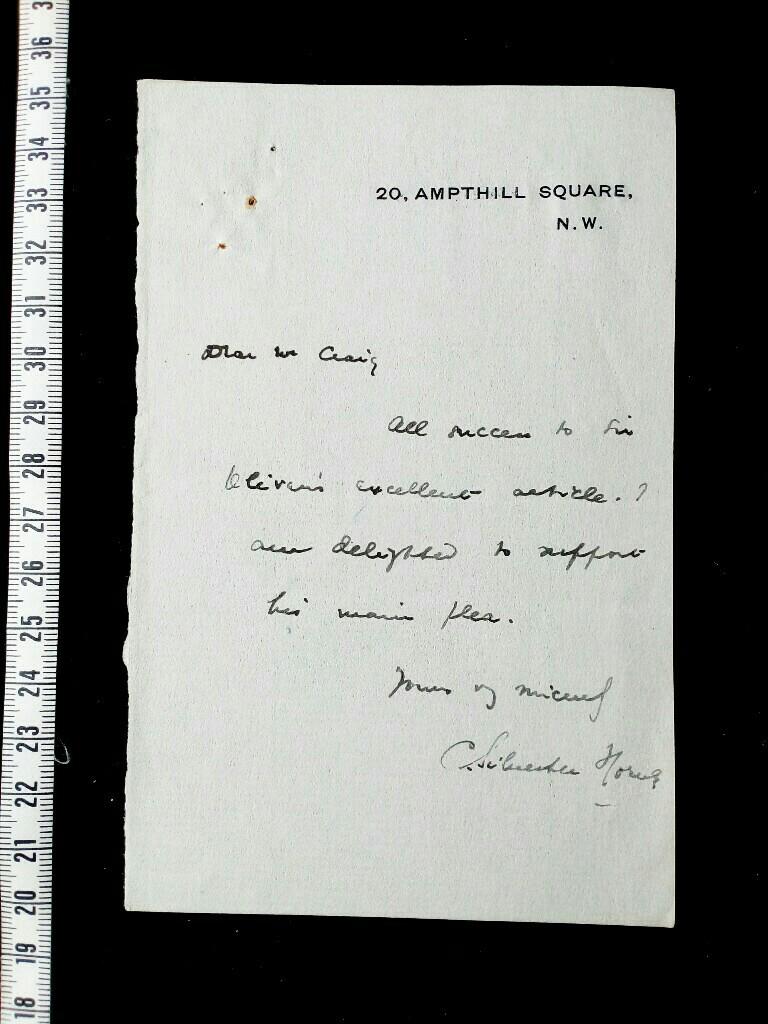 20, AMPTHILL SQUARE,
N.W.
Dear Mr Craig
All success to Sir
Oliver's excellent article. I
am delighted to support
his main plea.
Yours vy sincerely
C. Silvester Horne
36
35
34
33
32
31
30
29
28
27
26
25
24
23
22
21
20
19
18